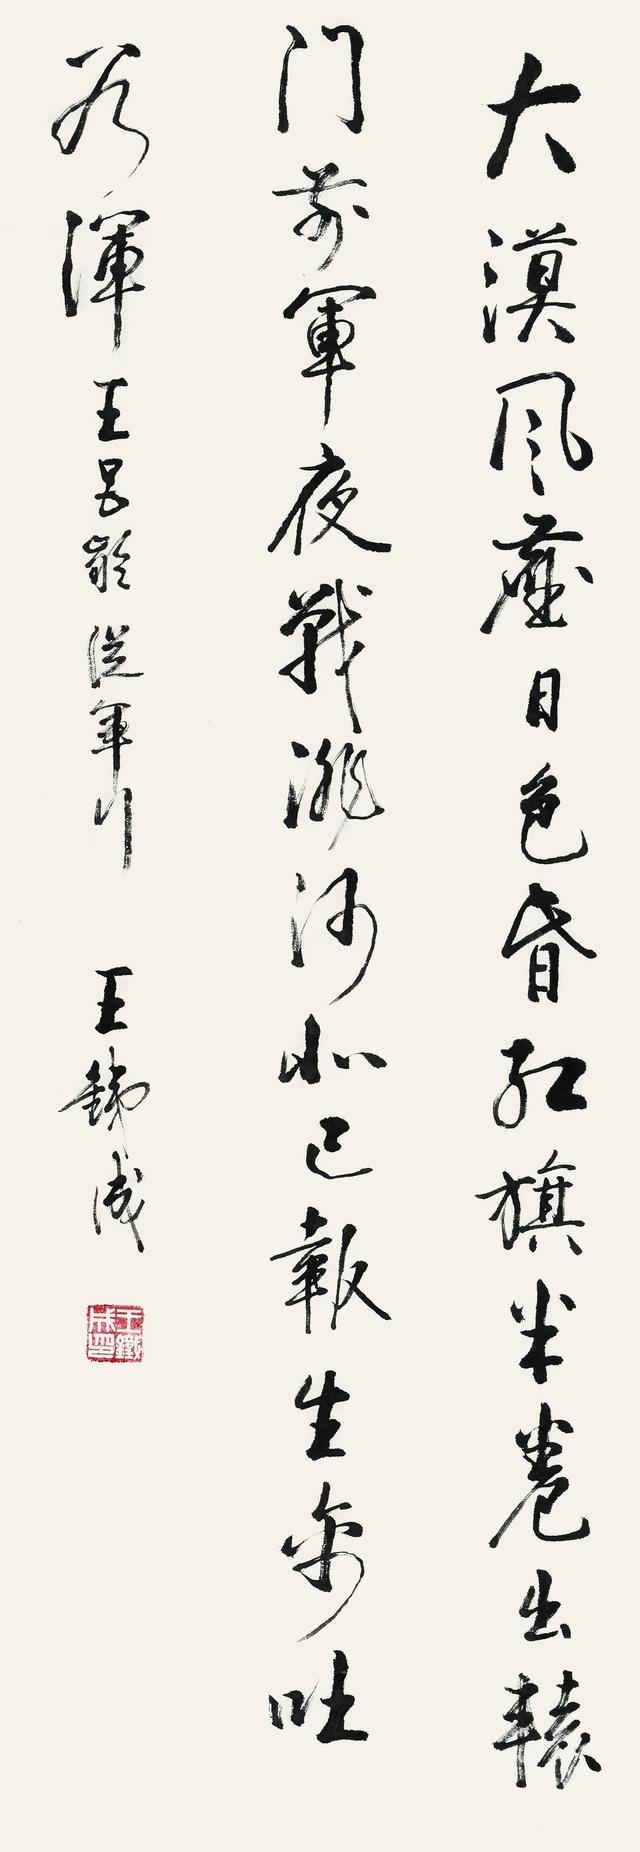 大漠风塵日色昏红旗半卷出轅
门前軍夜戰洮河北已報生擒吐
谷渾 王昌齡從軍行 王鐵成
王鐵成印